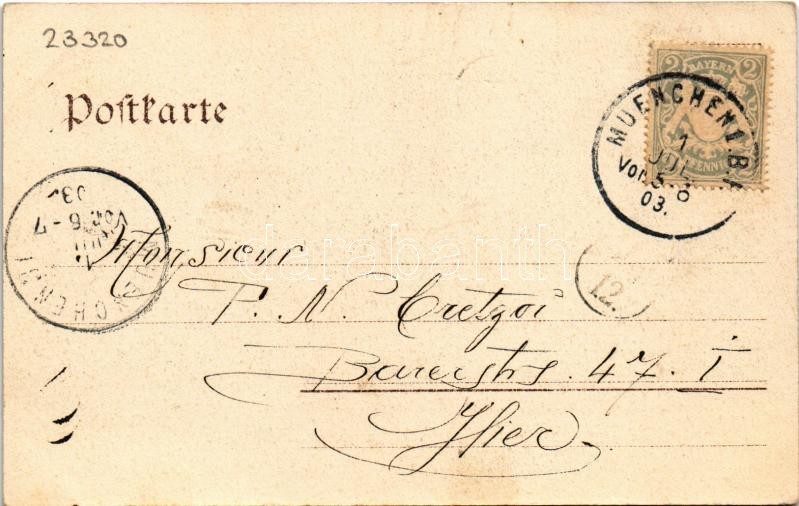 23320
Postkarte
2 BAYERN 2
PFENNIG
MUENCHEN 1. B.
1
JUL
Vor. 5-6
03.
MUENCHEN 1
1 JUL
Vor. 6-7
03.
12.
darabanth
Monsieur
P. N. Cretzoi
Barerstrs. 47. I
Hier